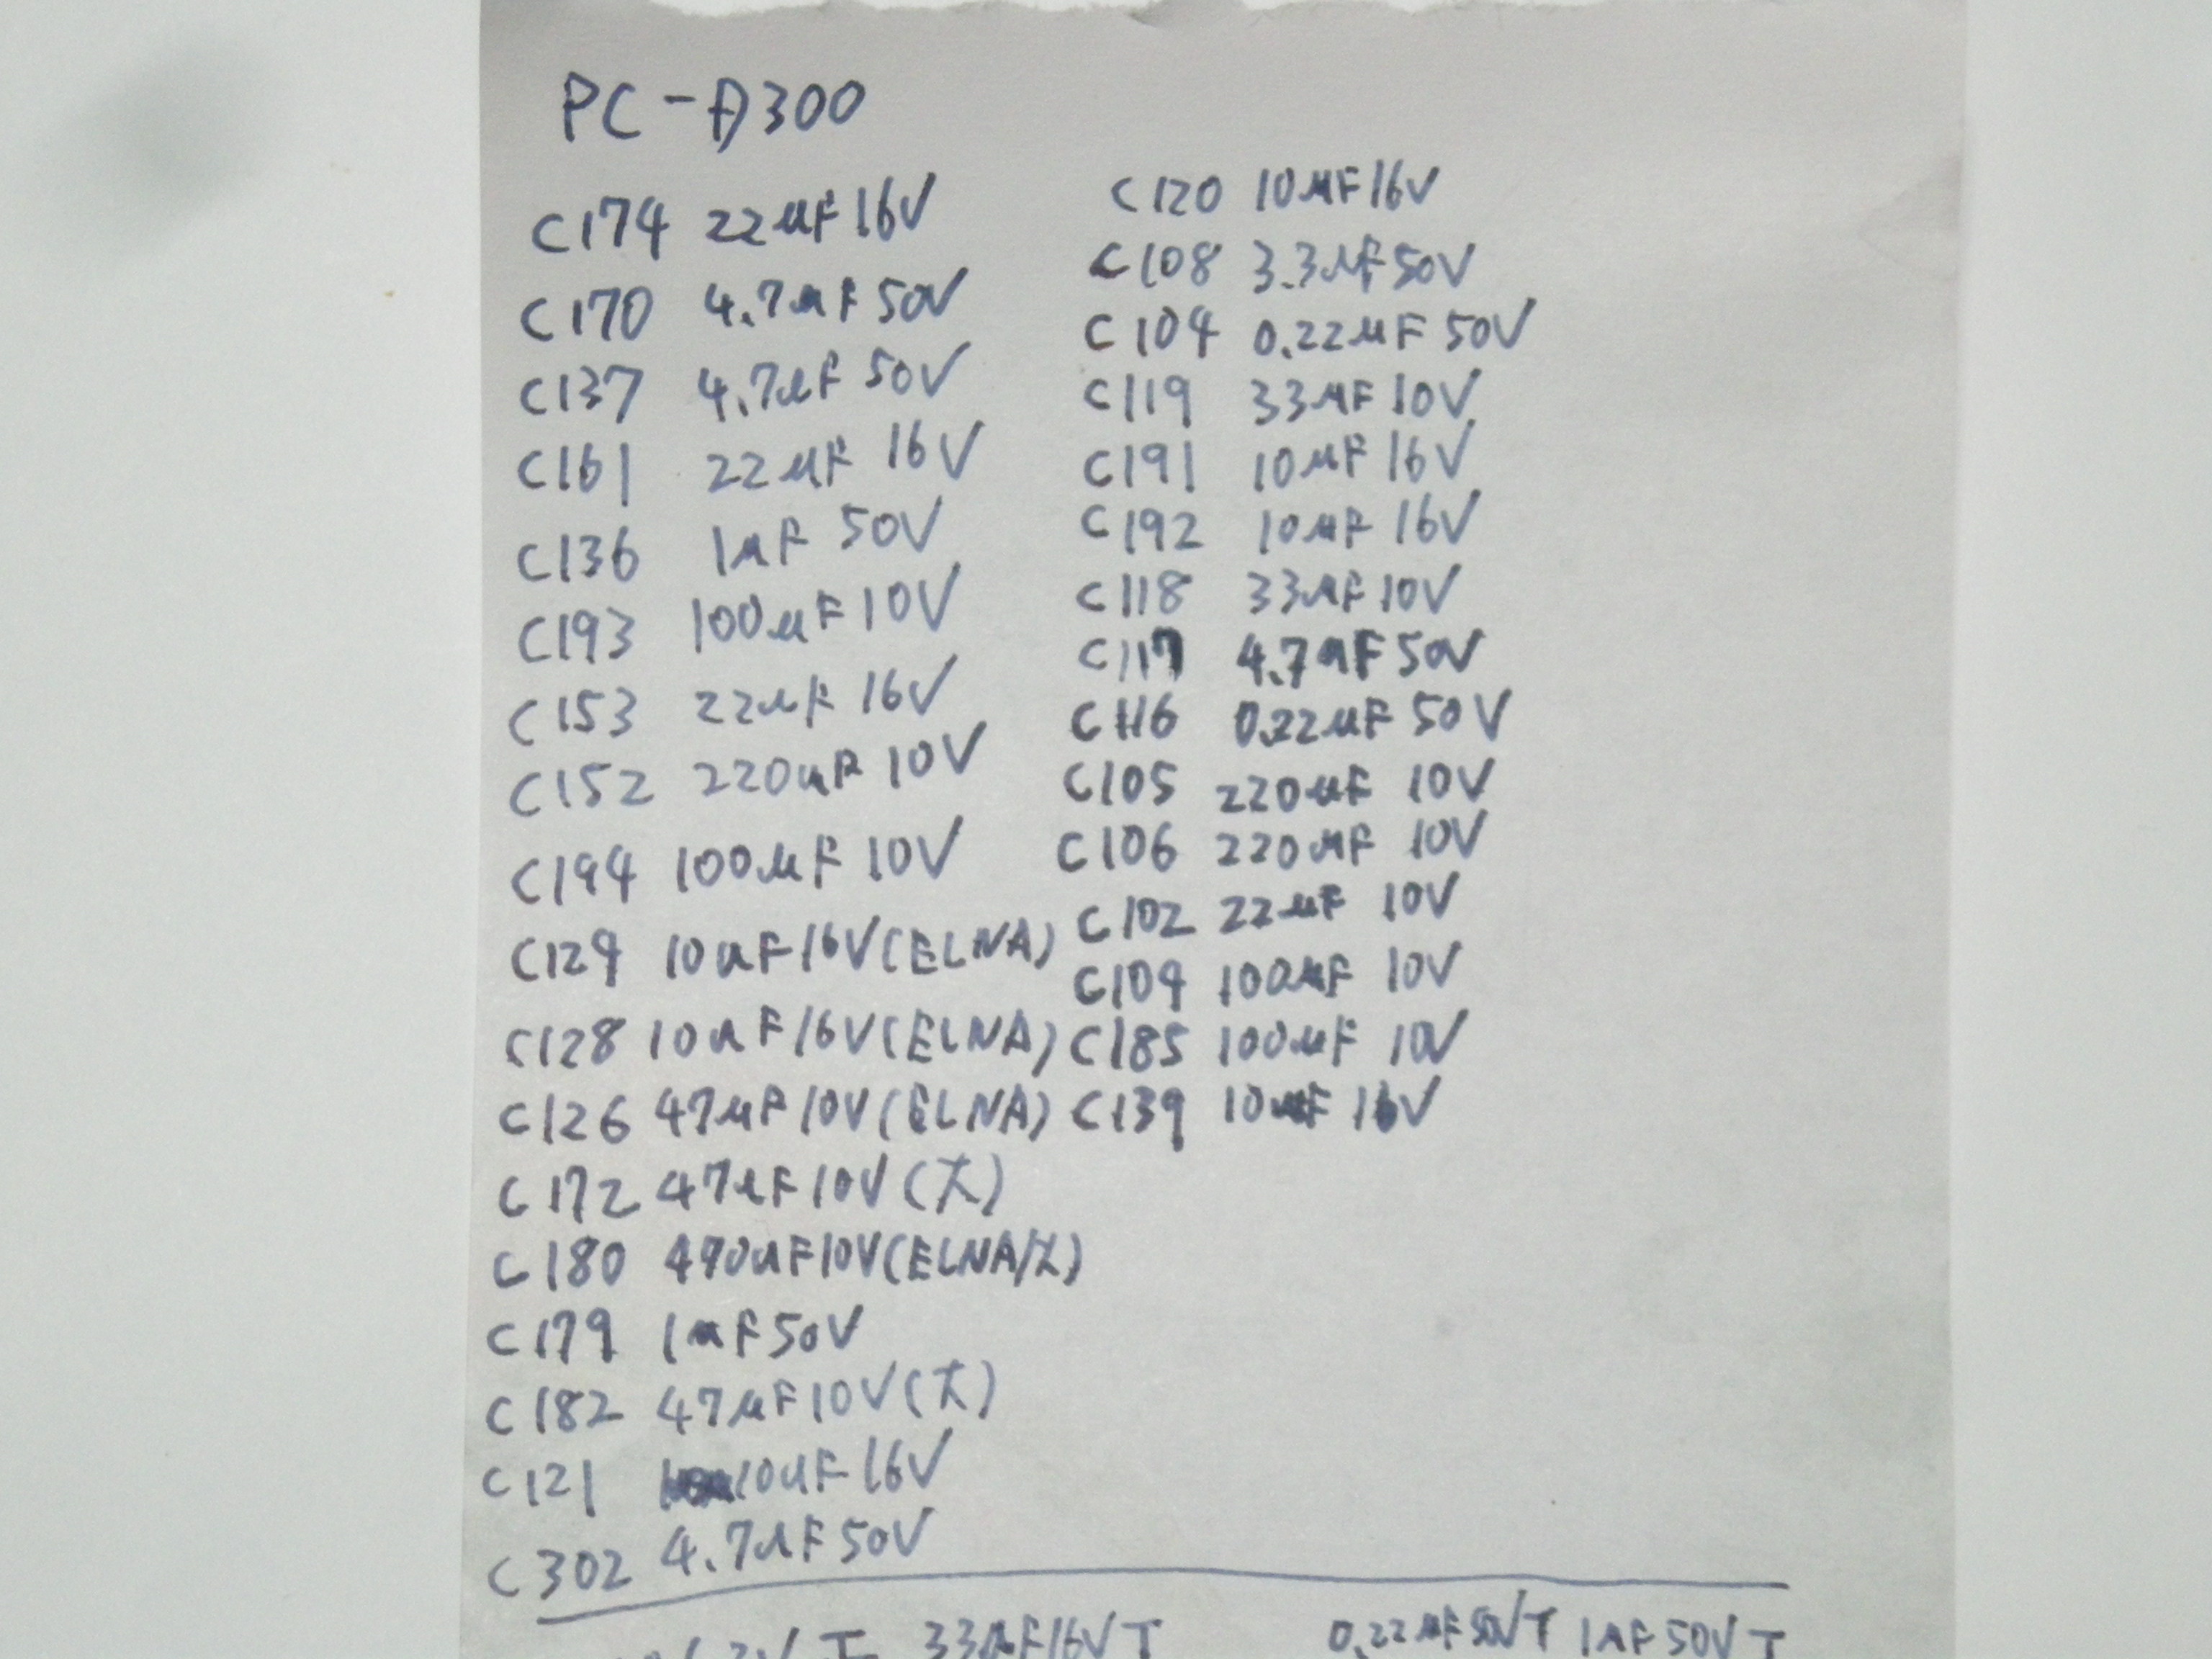 PC-D300
C174 22μF 16V
C170 4.7μF 50V
C137 4.7μF 50V
C161 22μF 16V
C136 1μF 50V
C193 100μF 10V
C153 22μF 16V
C152 220μF 10V
C194 100μF 10V
C129 10μF 16V (ELNA)
C128 10μF 16V (ELNA)
C126 47μF 10V (ELNA)
C172 47μF 10V (大)
C180 470μF 10V (ELNA/大)
C179 1μF 50V
C182 47μF 10V (大)
C121 10μF 16V
C302 4.7μF 50V
C120 10μF 16V
C108 3.3μF 50V
C104 0.22μF 50V
C119 33μF 10V
C191 10μF 16V
C192 10μF 16V
C118 33μF 10V
C117 4.7μF 50V
C116 0.22μF 50V
C105 220μF 10V
C106 220μF 10V
C102 22μF 10V
C109 100μF 10V
C185 100μF 10V
C139 10μF 16V
33μF 16V T 0.22μF 50V T 1μF 50V T